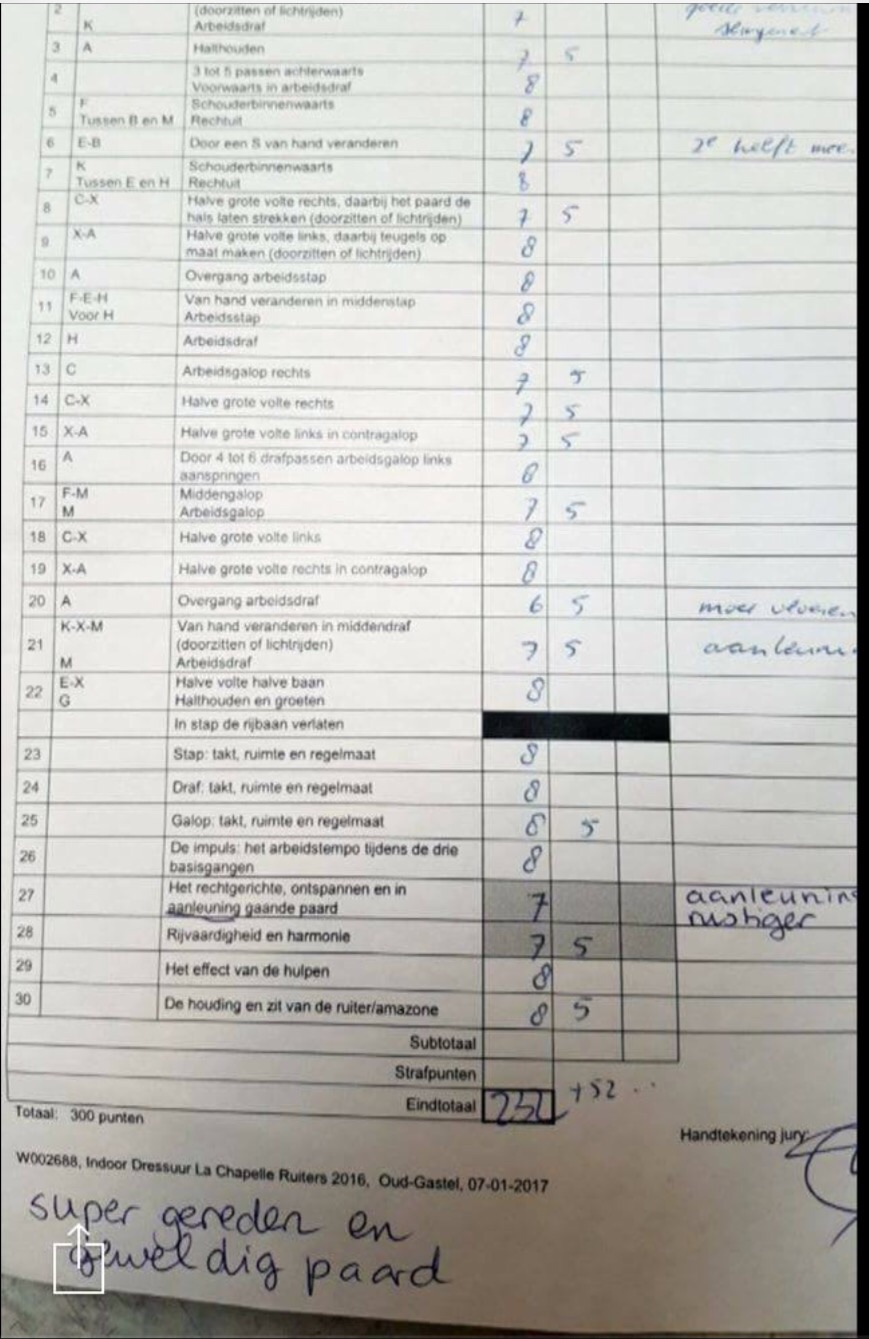 2 (doorzitten of lichtrijden)
K Arbeidsdraf 7
3 A Halthouden 7 5
4 3 tot 5 passen achterwaarts
Voorwaarts in arbeidsdraf 8
5 F Schouderbinnenwaarts
Tussen B en M Rechtuit 8
6 E-B Door een S van hand veranderen 7 5 2e helft mee
7 K Schouderbinnenwaarts
Tussen E en H Rechtuit 8
8 C-X Halve grote volte rechts, daarbij het paard de
hals laten strekken (doorzitten of lichtrijden) 7 5
9 X-A Halve grote volte links, daarbij teugels op
maat maken (doorzitten of lichtrijden) 8
10 A Overgang arbeidsstap 8
11 F-E-H Van hand veranderen in middenstap
Voor H Arbeidsstap 8
12 H Arbeidsdraf 8
13 C Arbeidsgalop rechts 7 5
14 C-X Halve grote volte rechts 7 5
15 X-A Halve grote volte links in contragalop 7 5
16 A Door 4 tot 6 drafpassen arbeidsgalop links
aanspringen 8
17 F-M Middengalop
M Arbeidsgalop 7 5
18 C-X Halve grote volte links 8
19 X-A Halve grote volte rechts in contragalop 8
20 A Overgang arbeidsdraf 6 5
21 K-X-M Van hand veranderen in middendraf
(doorzitten of lichtrijden) 7 5
M Arbeidsdraf
22 E-X Halve volte halve baan
G Halthouden en groeten 8
In stap de rijbaan verlaten
23 Stap: takt, ruimte en regelmaat 8
24 Draf: takt, ruimte en regelmaat 8
25 Galop: takt, ruimte en regelmaat 8 5
26 De impuls: het arbeidstempo tijdens de drie
basisgangen 8
27 Het rechtgerichte, ontspannen en in aanleunin
aanleuning gaande paard 7 rustiger
28 Rijvaardigheid en harmonie 7 5
29 Het effect van de hulpen 8
30 De houding en zit van de ruiter/amazone 8 5
Subtotaal
Strafpunten
Eindtotaal +52
Totaal: 300 punten
Handtekening jury:
W002688, Indoor Dressuur La Chapelle Ruiters 2016, Oud-Gastel, 07-01-2017
super gereden en
geweldig paard